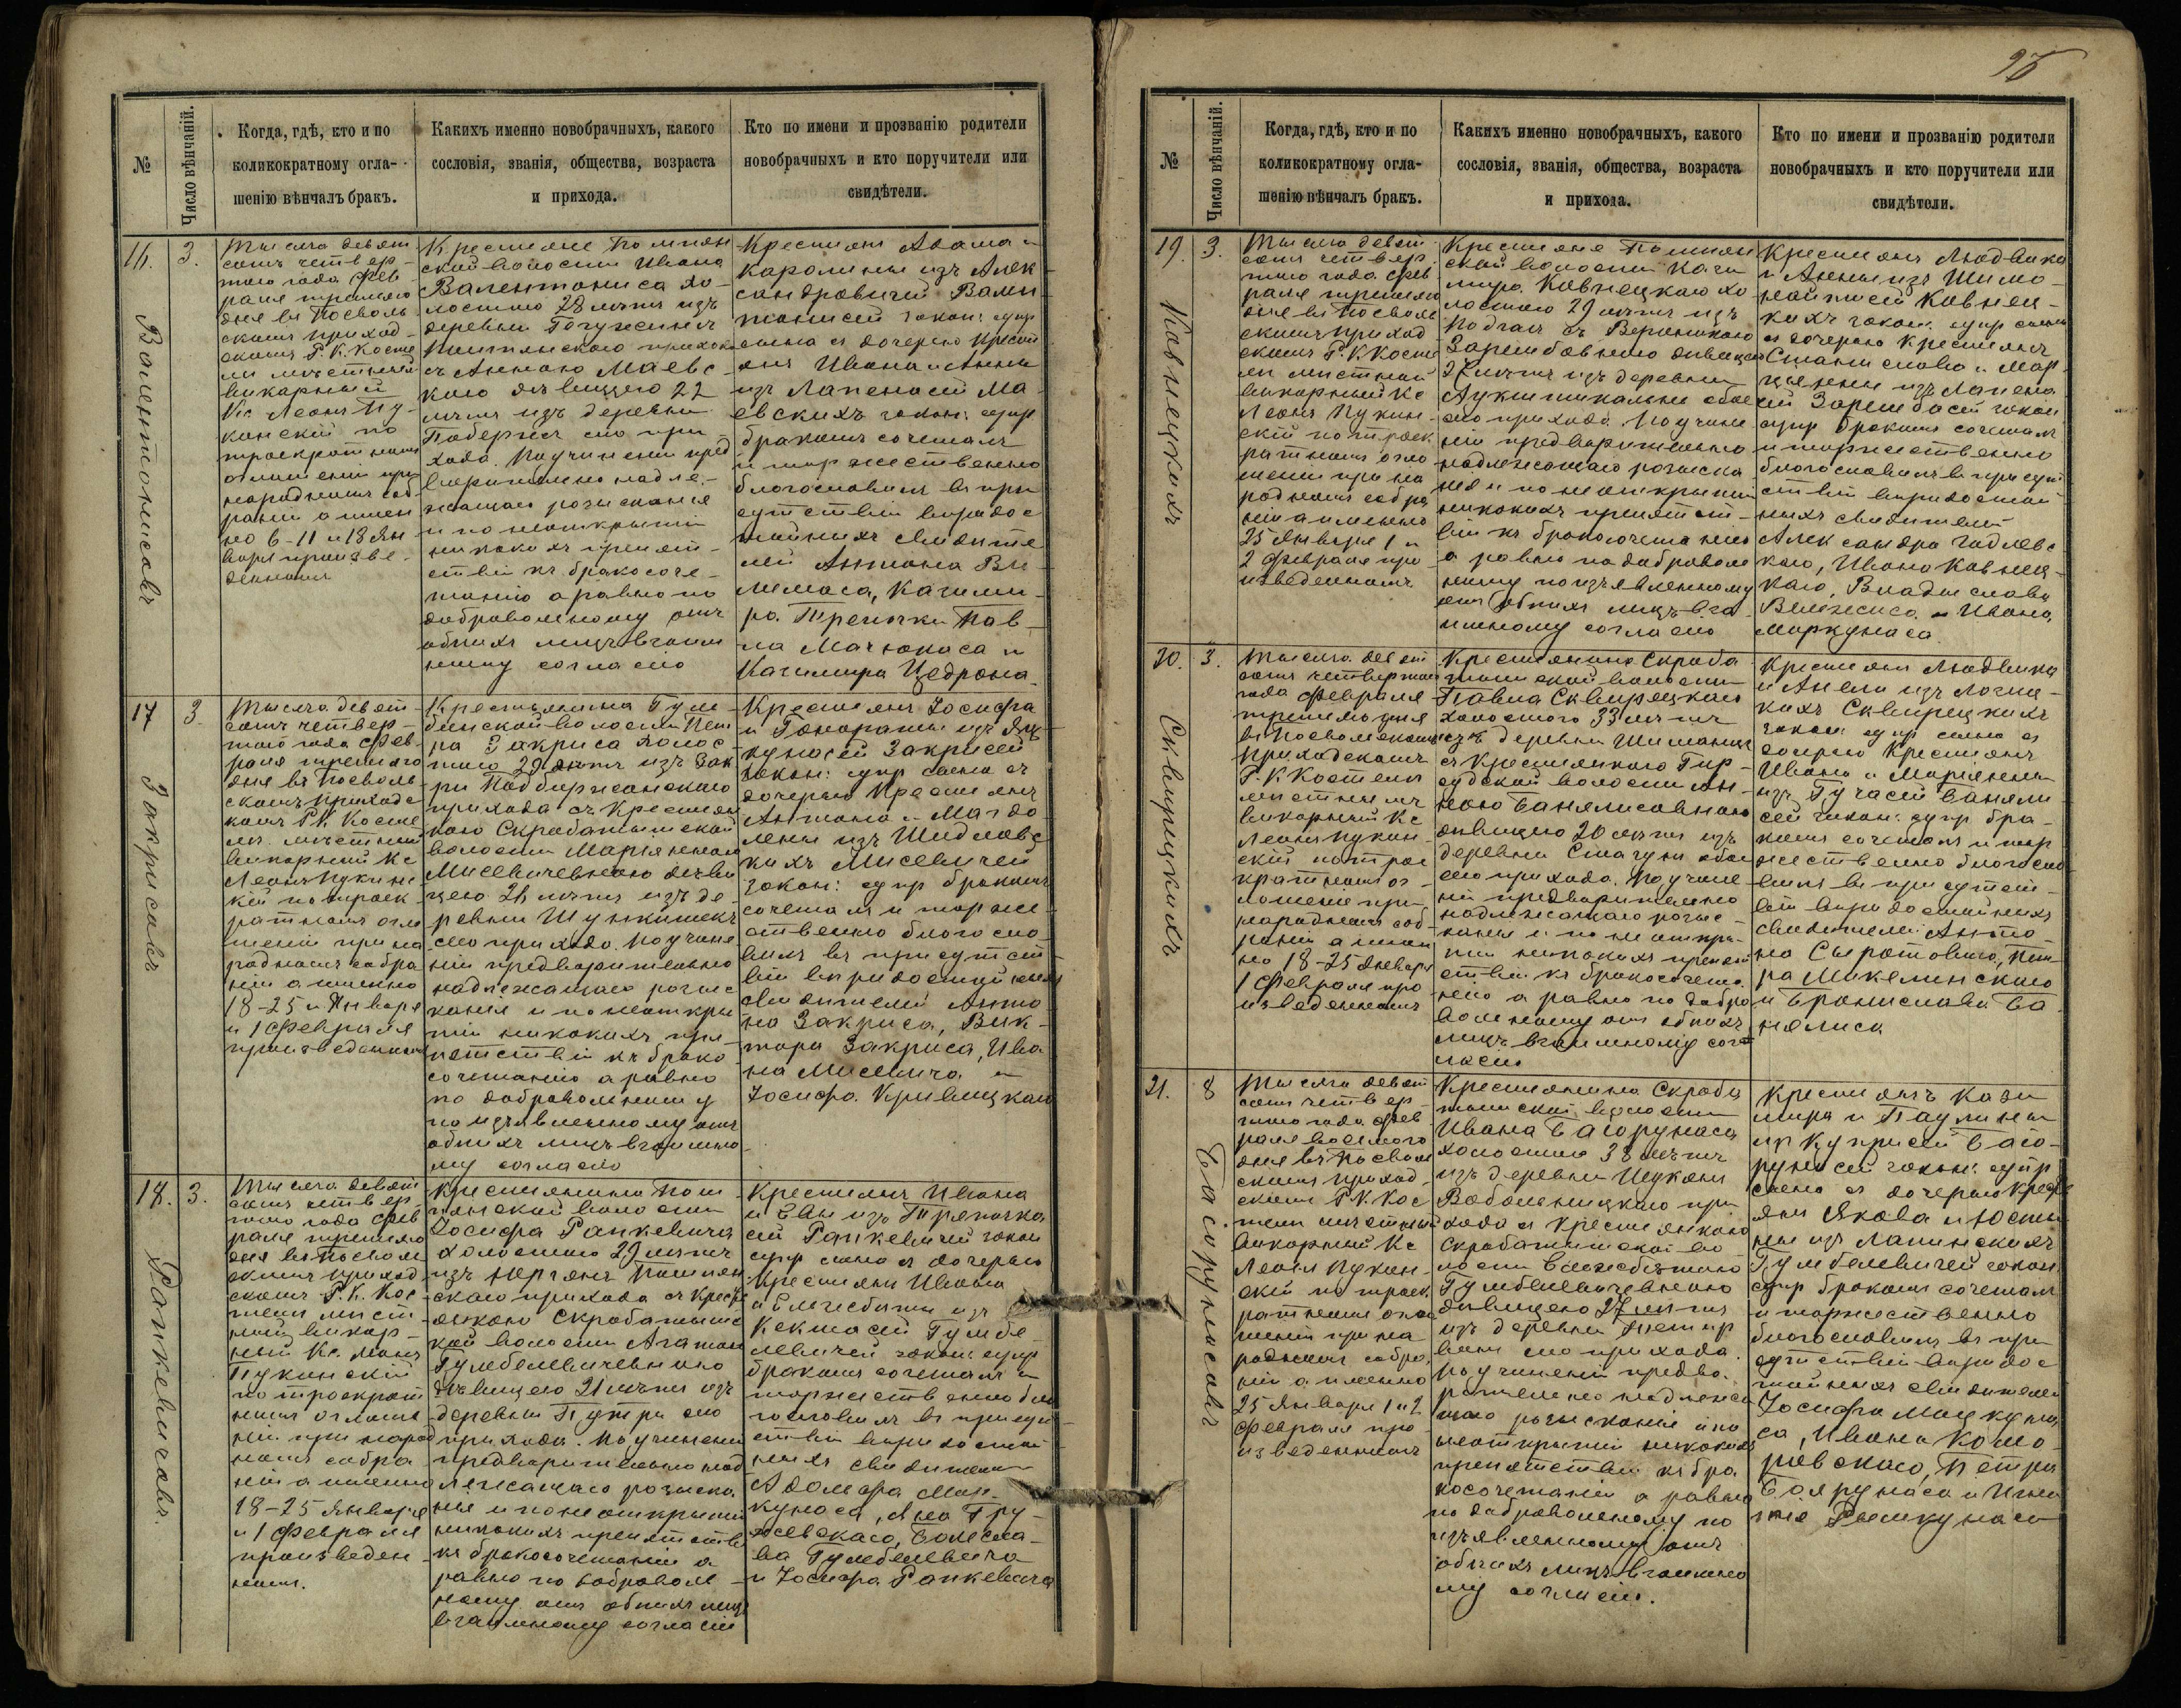 96
№
Число вѣнчаній.
Когда, гдѣ, кто и по
коликократному огла-
шенію вѣнчалъ бракъ.
Какихъ именно новобрачныхъ, какого
сословія, званія, общества, возраста
и прихода.
Кто по имени и прозванію родители
новобрачныхъ и кто поручители или
свидѣтели.
16.
3.
Валентонисовъ
Тысяча девят
сотъ четвер-
таго года Фев
раля третьяго
дня въ Посволь
скомъ приход-
скомъ Р. К. Косте
лѣ мѣстный
викарный
Кс Леонъ Пу-
конскій по
троекратномъ
оглашеніи при
народномъ соб-
раніи а имен
но 6-11 и 18 Ян
варя произве-
денномъ
Крестьяне Помпян
ской волости Ивана
Валентониса хо-
лостого 28 лѣтъ изъ
деревни
прихода
съ Анною Маевс-
кою дѣвицею 22
лѣтъ изъ деревни
сего при-
хода. По учиненіи пред
варительно надле-
жащаго розысканія
и по неоткрытіи
никакихъ препят-
ствій къ бракосоче-
танію а равно по
добровольному отъ
обѣихъ лицъ взаим
ному согласію
Крестьянъ Адама и
Каролины изъ Алек
сандровичей Вален
тонисей закон: супр
сына съ дочерью Крест
янъ Ивана и Анны
изъ Лапенасей Ма-
евскихъ закон: супр
бракомъ сочеталъ
и торжественно
благословилъ въ при
сутствіи виродос
тойныхъ свидѣте
лей Антона Ви-
лимаса, Казими-
ра Трепочки Пав-
ла Мачюкаса и
Казимира Цедрона
17
3.
Закрисовъ
Тысяча девят-
сотъ четвер-
таго года Фев-
раля третьяго
дня въ Посволь-
скомъ приходс
комъ Р.К. Косте
лѣ мѣстный
викарный Кс
Леонъ Пуконс
кій по троек-
ратномъ огла
шеніи при на
родномъ собра
ніи а именно
18-25 и Января
и 1 Февраля
произведенномъ
Крестьянина Гум-
бинской волости Пет
ра Закриса холос-
того 29 лѣтъ изъ Зак
ри Подбиржанскаго
прихода съ Крестьян
кою Скробатышской
волости Марьянною
Мисевичевною дѣви
цею 21 лѣтъ изъ де-
ревни Шункишекъ
сего прихода. По учине
ніи предварительно
надлежащаго розыс
канія и по неоткры
тіи никакихъ пре-
пятствій къ брако
сочетанію а равно
по добровольному
по изъявленному отъ
обѣихъ лицъ взаимно
му согласію
Крестьянъ Іосифа
и Гонораты изъ Янк
кунасей Закрисей
закон: супр сына съ
дочерью Крестьянъ
Антона и Магда
лены изъ Шидловс
кихъ Мисевичей
закон: супр бракомъ
сочеталъ и торже-
ственно благосло
вилъ въ присутст
віи виродостойныхъ
свидѣтелей Анто
на Закриса, Вик-
тора Закриса, Ива
на Мисевича и
Іосифа Кривицкаго
18.
3.
Рапкевичовъ.
Тысяча девят
сотъ четвер
таго года Фев
раля третьяго
дня въ Посволь
скомъ приход
скомъ Р. К. Кос
телѣ мѣст
ный викар-
ный Кс. Леонъ
Пуконскій
по троекрат
номъ оглаше
ніи при народ
номъ собра
ніи а именно
18-25 Января
и 1 Февраля
произведен-
номъ.
Крестьянина Пом
пянской волости
Іосифа Рапкевича
холостого 29 лѣтъ
изъ Помпян
скаго прихода съ Крест
янкою Скробатышс
кой волости Агатою
Гумбелевичевною
дѣвицею 21 лѣтъ изъ
деревни Путри сего
прихода. По учиненіи
предварительно над
лежащаго розыска
нія и по неоткрытіи
никакихъ препятств
къ бракосочетанію а
равно по доброволь-
ному отъ обѣихъ лицъ
взаимному согласію
Крестьянъ Ивана
и Евы изъ Трепочка
сей Рапкевичей закон
супр сына съ дочерью
Крестьянъ Ивана
и Елизабеты изъ
Кекштасей Гумбе-
левичей закон: супр
бракомъ сочеталъ и
торжественно бла
гословилъ въ присут
ствіи виродостой-
ныхъ свидѣтелей
Адомара Мор-
кунаса, Яна Гру-
жевскаго, Болесла-
ва Гумбелевича
и Іосифа Рапкевича
№
Число вѣнчаній.
Когда, гдѣ, кто и по
коликократному огла-
шенію вѣнчалъ бракъ.
Какихъ именно новобрачныхъ, какого
сословія, званія, общества, возраста
и прихода.
Кто по имени и прозванію родители
новобрачныхъ и кто поручители или
свидѣтели.
19.
3.
Ковнецкихъ
Тысяча девят
сотъ четвер
таго года Фев
раля третьяго
дня въ Посволь
скомъ приход
скомъ Р. К Косте
лѣ мѣстный
викарный Кс
Леонъ Пукон-
скій по троек
ратномъ огла
шеніи при на
родномъ собра
ніи а именно
25 Января 1 и
2 Февраля про
изведенномъ
Крестьяне Помпян
ской волости Кази
мира Ковнецкаго хо
лостого 29 лѣтъ изъ
съ Вероникою
Зарембовною дѣвицею
27 лѣтъ изъ деревни
обое
его прихода. По учине
ніи предварительно
надлежащаго розыска
нія и по неоткрытіи
никакихъ препятст-
вій къ бракосочетанію
а равно по доброволь
ному по изъявленному
отъ обѣихъ лицъ вза-
имному согласію
Крестьянъ Людвика
и Анны изъ Шимо-
найтисей Ковнец-
кихъ закон: супр сына
съ дочерью Крестьянъ
Станислава и Мар
цыянны изъ Лапена
сей Зарембасей закон
супр бракомъ сочеталъ
и торжественно
благословилъ въ присут
ствіи виродостой
ныхъ свидѣтелей
Александра Гадлевс
каго, Ивана Ковнец-
каго, Владислава
Велжиса и Ивана
Моркунаса
20.
3.
Сквирецкихъ
Тысяча девят
сотъ четвертаго
года Февраля
третьяго дня
въ Посвольскомъ
приходскомъ
Р. К Костелѣ
мѣстный
викарный Кс
Леонъ Пукон-
скій по трое
кратномъ ог-
лашеніи при
народномъ соб-
раніи а имен
но 18-25 Января
1 Февраля про
изведенномъ
Крестьянина Скроба
тышской волости
Павла Сквирецкаго
холостого 33 лѣтъ
изъ деревни Шиманцы
съ Крестьянкою Гир-
судской волости Ан-
ною Банялисовною
дѣвицею 20 лѣтъ изъ
деревни Стачуны обое
его прихода. По учине
ніи предварительно
надлежащаго розыс-
канія и по неоткры-
тіи никакихъ препят
ствій къ бракосочета
нію а равно по добро
вольному отъ обѣихъ
лицъ взаимному сог-
ласію
Крестьянъ Людвика
и Анели изъ Логиц-
кихъ Сквирецкихъ
закон: супр сына съ
дочерью Крестьянъ
Ивана и Марьянны
изъ Гучасей Баняли
сей закон: супр бра-
комъ сочеталъ и тор
жественно благосло
вилъ въ присутст-
віи виродостойныхъ
свидѣтелей Анто-
на Сыротовича, Пет
ра Микелинскаго
и Бронислава Ба
нялиса
21.
8
Багорунасовъ
Тысяча девят
сотъ четвер
таго года Фев
раля восьмого
дня въ Посволь
скомъ приход-
скомъ Р.К. Кос
телѣ мѣстный
викарный Кс
Леонъ Пукон-
скій по троек
ратномъ огла
шеніи при на
родномъ собра
ніи а именно
25 Января 1 и 2
Февраля про
изведенномъ
Крестьянина Скроба
тышской волости
Ивана Багорунаса
холостого 38 лѣтъ
изъ деревни Шукяны
Вабольницкаго при
хода съ Крестьянкою
Скробатышской во
лости Елизабетою
Гумбелевичевною
дѣвицею 27 лѣтъ
изъ деревни
сего прихода.
По учиненіи предва
рительно надлежа
щаго розысканія и по
неоткрытіи никакихъ
препятствій къ бра
косочетанію а равно
по добровольному по
изъявленному отъ
обѣихъ лицъ взаимно
му согласію.
Крестьянъ Кази
мира и Паулины
изъ Куприсей Баго-
рунасей закон: супр
сына съ дочерью Крест
янъ Якова и Юсты
ны изъ Лапинскихъ
Гумбелевичей закон.
супр бракомъ сочеталъ
и торжественно
благословилъ въ при
сутствіи виродос
тойныхъ свидѣтелей
Іосифа Моцкуна
са, Ивана Комо-
ровскаго, Петра
Багорунаса и Игна
тія Римкунаса